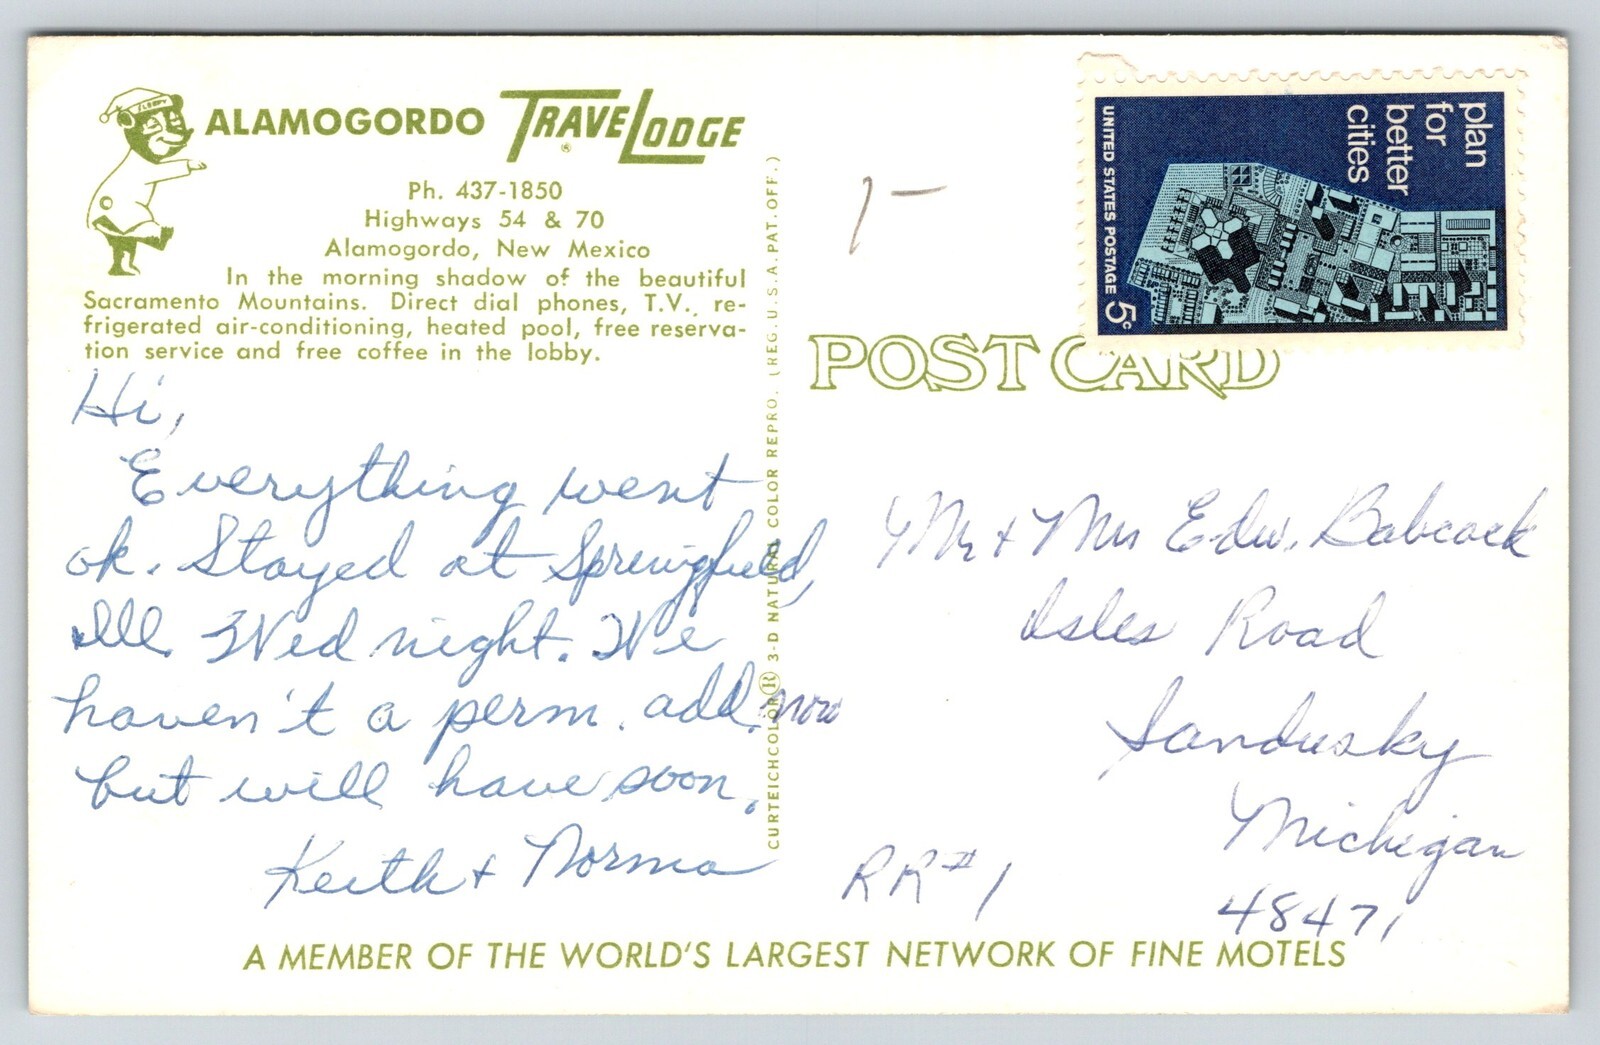 SLEEPY
ALAMOGORDO TRAVELODGE
®
Ph. 437-1850
Highways 54 & 70
Alamogordo, New Mexico
In the morning shadow of the beautiful
Sacramento Mountains. Direct dial phones, T.V., re-
frigerated air-conditioning, heated pool, free reserva-
tion service and free coffee in the lobby.
Hi,
Everything went
ok. Stayed at Springfield,
Ill. Wed night. We
haven't a perm. add. now
but will have soon.
Keith + Norma
CURTEICHCOLOR® 3-D NATURAL COLOR REPRO. (REG. U.S.A. PAT. OFF.)
1-
plan
for
better
cities
UNITED STATES POSTAGE 5c
POST CARD
Mr + Mrs Edw. Babcock
Isles Road
Sandusky
Michigan
RR#1
48471
A MEMBER OF THE WORLD'S LARGEST NETWORK OF FINE MOTELS